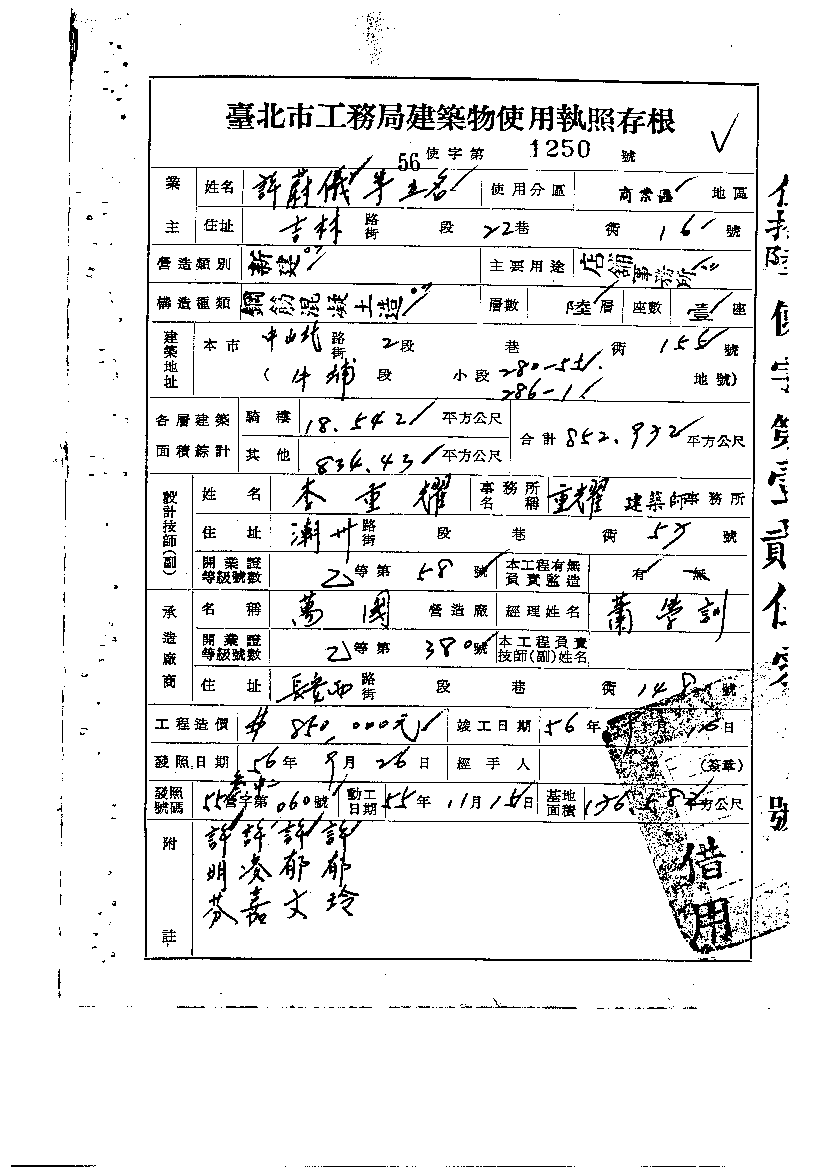 臺北市工務局建築物使用執照存根
56使字第 1250 號
業主 姓名 許蔚儀等五名 使用分區 商業區 地區
住址 吉林路街 段 22巷 街 16 號
營造類別 新建 主要用途 店舖事務所
構造種類 鋼筋混凝土造 層數 陸層 座數 壹座
建築地址 本市 中山北路街 2段 巷 街 155 號
(牛埔段 小段 280-55 286-1 地號)
各層建築面積綜計 騎樓 18.542 平方公尺 合計 852.972 平方公尺
其他 834.43 平方公尺
設計技師(副) 姓名 李重耀 事務所名稱 重耀 建築師事務所
住址 潮州路街 段 巷 街 53 號
開業證等級號數 乙等第 58 號 本工程有無負責監造 有 無
承造廠商 名稱 萬國 營造廠 經理姓名 蕭營訓
開業證等級號數 乙等第 380 號 本工程負責技師(副)姓名
住址 長安西路街 段 巷 街 148 號
工程造價 # 850,000元 竣工日期 56年 9月 16日
發照日期 56年 9月 26日 經手人 (簽章)
發照號碼 55營字第 060號 動工日期 55年 11月 15日 基地面積 136.582 平方公尺
附註 許明芬 許凌嘉 許郁文 許郁玲
借用
號